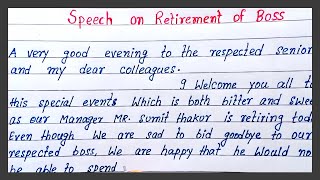 Speech on Retirement of Boss
A very good evening to the respected senior
and my dear colleagues.
I Welcome you all to
this special events Which is both bitter and swee
as our Manager MR. Sumit thakur is retiring tod
Even though We are sad to bid goodbye to our
respected boss, We are happy that he Would no
be able to spend